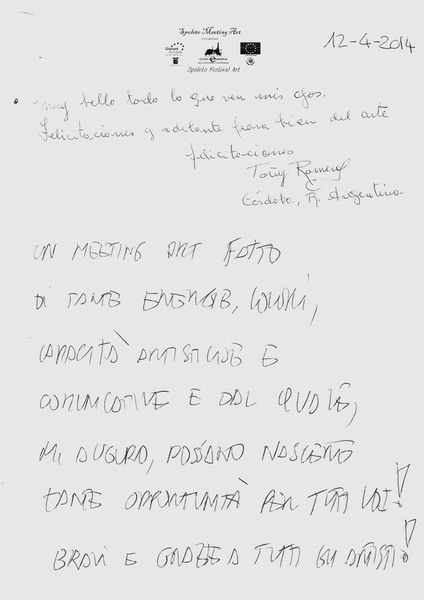 Spoleto Meeting Art
Spoleto Festival Art
12-4-2014
muy bello todo lo que ven mis ojos.
Felicitaciones y adelante para bien del arte
felicitaciones
Tony Romero
Córdoba, R. Argentina
UN MEETING ART FATTO
DI TANTE ENERGIE, COLORI,
CAPACITÀ ARTISTICHE E
COMUNICATIVE E DAL QUALE,
MI AUGURO, POSSANO NASCERE
TANTE OPPORTUNITÀ PER TUTTI VOI!
BRAVI E GRAZIE A TUTTI GLI ARTISTI!